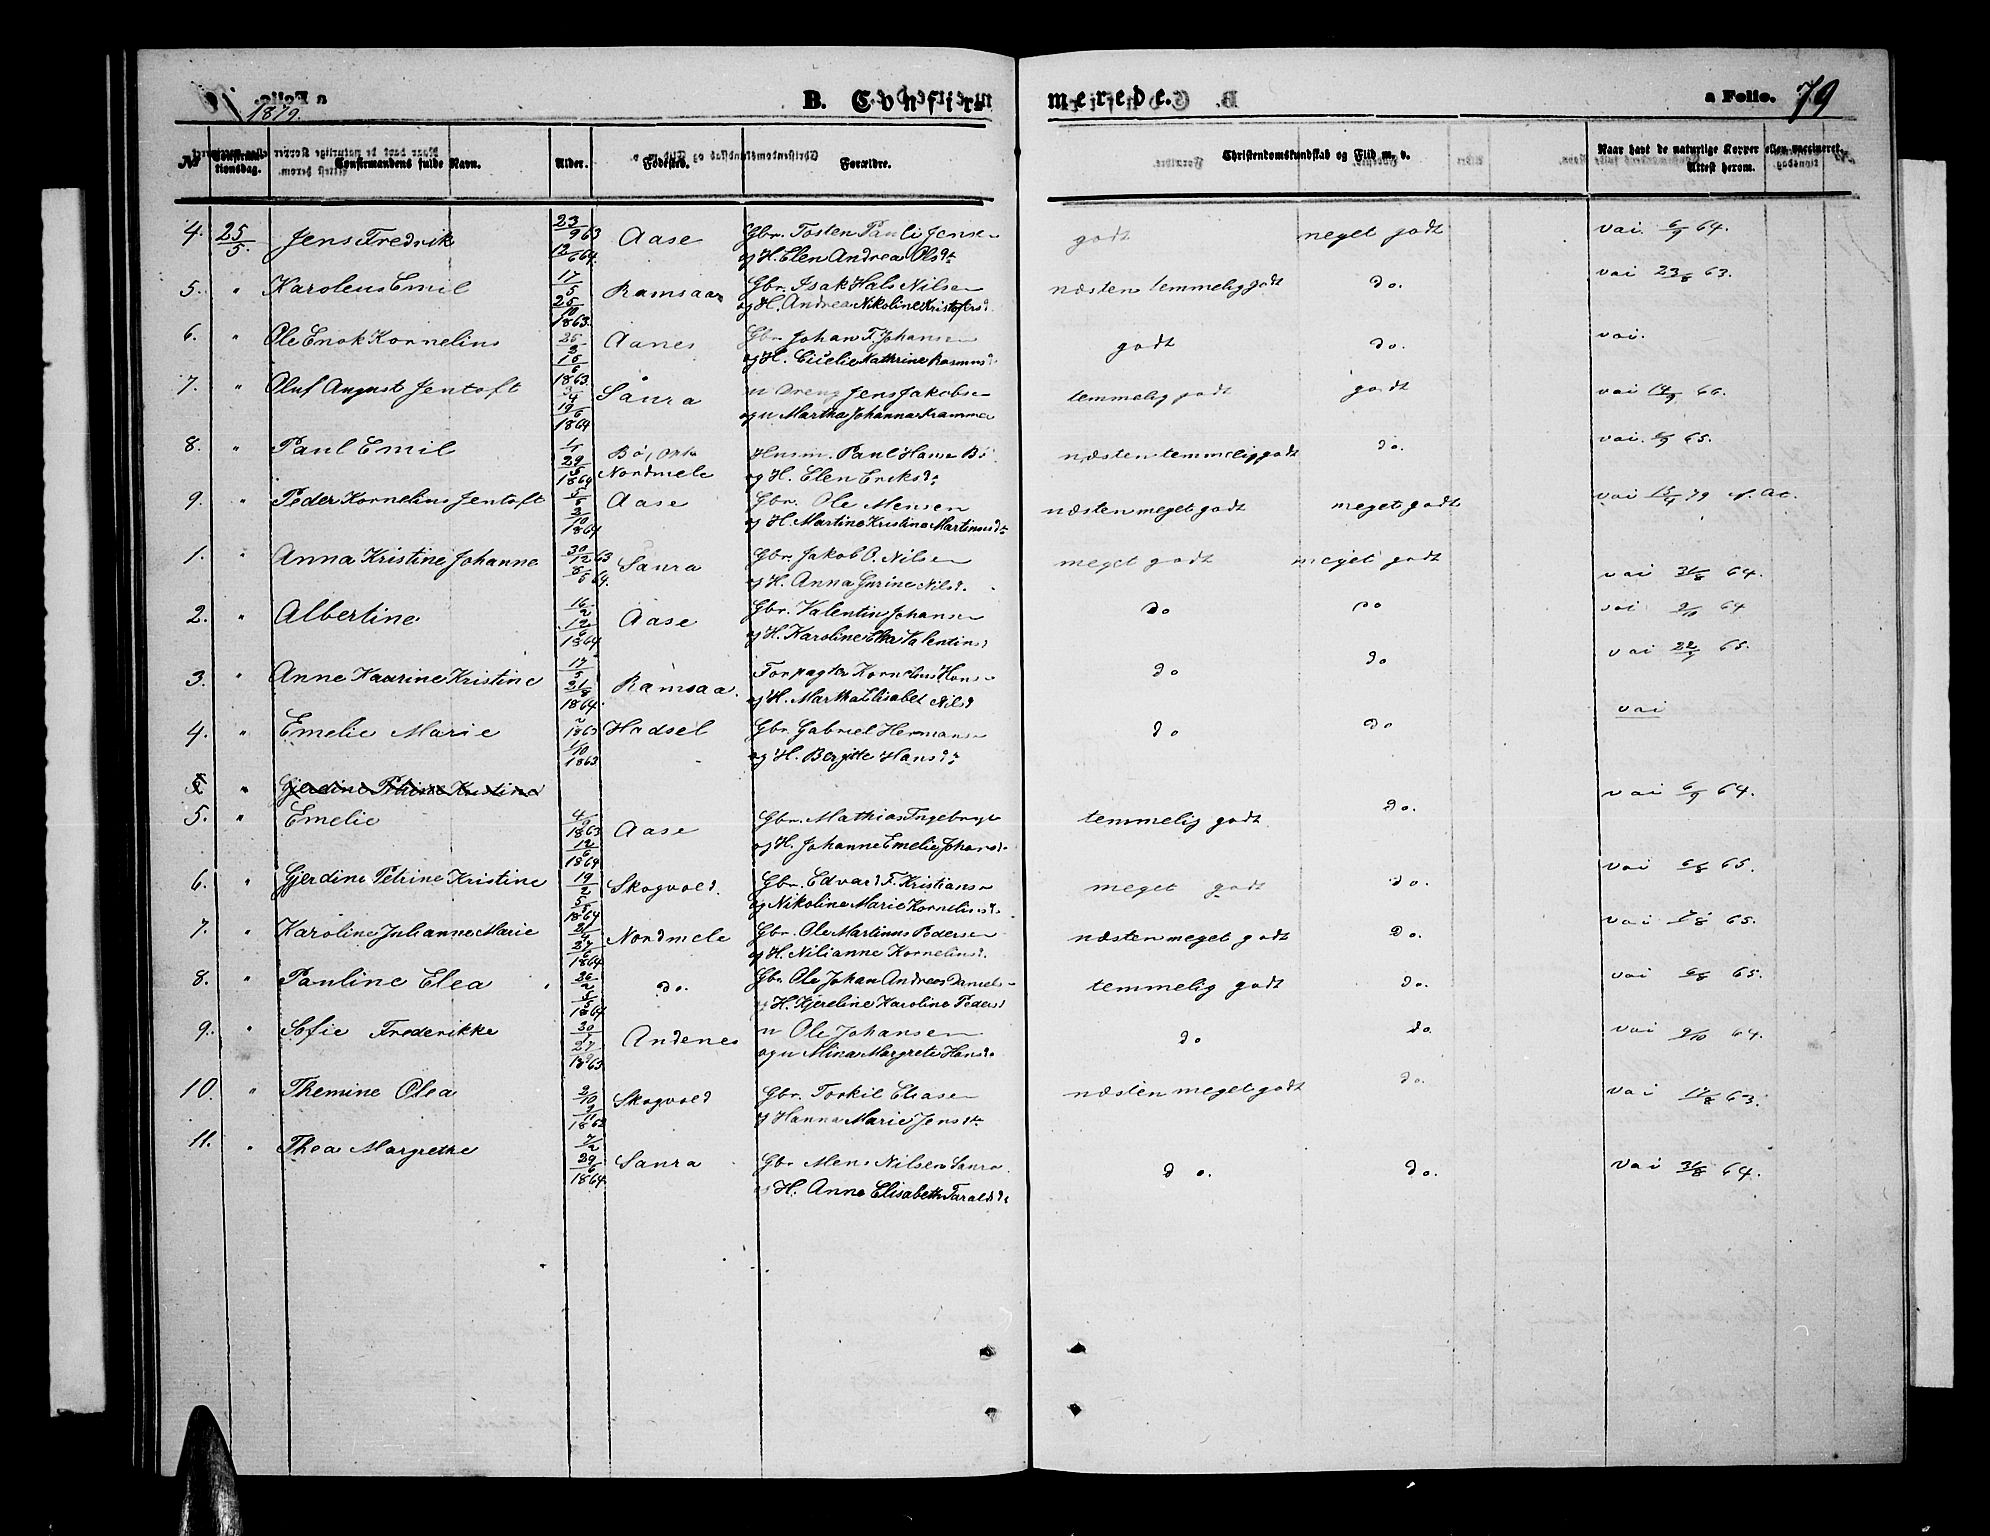 1879.
B. Confir-
merede.
a Folio. 79
No
Confirmationsdag.
Confirmandens fulde Navn.
Alder.
Fødested.
Forældre.
Christendomskundskab og Flid m. v.
Naar havt de naturlige Kopper eller vaccineret.
Attest herom.
4. 25/5. Jens Fredrik 23/9 63 12/6 64. Aase Gbr. Tosten Pauli Jense
og H. Elen Andrea Olsdtr godt meget godt vai. 6/9 64.
5. " Karoleus Emil 17/5 25/10 1863. Ramsaa Gbr. Isak Hals Nilsen
og H. Andrea Nikoline Kristofersd. næsten temmelig godt do. vai 23/8 63.
6. " Ole Enok Kornelius 1863. Aanes Gbr. Johan F. Johansen
og H. Cicelie Kathrine Rasmusd. godt do. vai.
7. " Oluf August Jentoft 19/6 1864 Saura u Dreng Jens Jakobse
og u Martha Johanna Kramme temmelig godt godt vai 14/9 66.
8. " Paul Emil 1/1 29/5 1864 Bø, Nordmele Husm. Paul Hanse Bø
og H. Elen Eriksd. næsten temmelig godt do. vai. 65.
9. " Peder Kornelius Jentoft 1864 Aase Gbr. Ole Mensen
og H. Martine Kristine Martinusdtr næsten meget godt meget godt vai 79
1. " Anna Kristine Johanne 30/12 63 8/5 64. Saura Gbr. Jakob O. Nilsen
og H. Anna Gurine Nilsd. meget godt meget godt vai 31/8 64.
2. " Albertine 16/2 12/6 1864 Aase Gbr. Valentin Johansen
og H. Karoline Elen Valentinsd. do do vai 9/10 64
3. " Anne Kaarine Kristine 17/5 21/8 1864. Ramsaa. Forpagter Kornelius Hans
og H. Martha Elisabet Nilsd do do vai 22/9 65.
4. " Emelie Marie 1863 1/10 1863 Hadsel Gbr. Gabriel Hermans
og H. Bergitte Hansd. do do vai
" Gjerdine Petrine Kristine
5. " Emelie 4/9 1863 12/6 1864 Aase Gbr. Mathias Ingebrigt
og H. Johanne Emelie Johansd. temmelig godt. do. vai 6/9 64.
6. " Gjerdine Petrine Kristine 19/2 5/5 1864 Skogvold. Gbr. Edvard F. Kristianse
og Nikoline Marie Kornelisd. meget godt do. vai 6/8 65.
7. " Karoline Julianne Marie 27/6 1864 Nordmele Gbr. Ole Martinus Pedersen
og H. Nilianne Kornelinsd. næsten meget godt do. vai 65.
8. " Pauline Elea 26/2 5/5 1864 do. Gbr. Ole Johan Andreas Daniels
og H. Kjereline Karoline Pedersd temmelig godt do. vai 6/8 65.
9. " Sofie Frederikke 1863 Andenes u Ole Johansen
og u Mina Margrete Hansd. do do. vai 9/10 64.
10. " Themine Olea 2/10 1863 Skogvold Gbr. Torkil Eliasen
og Hanna Marie Jensdtr næsten meget godt do. vai 63.
11. " Thea Margrethe 7/2 29/6 1864. Saura Gbr Mens Nilsen Saura
og H. Anne Elisabeth Taralsd. do. do. vai 31/8 64.